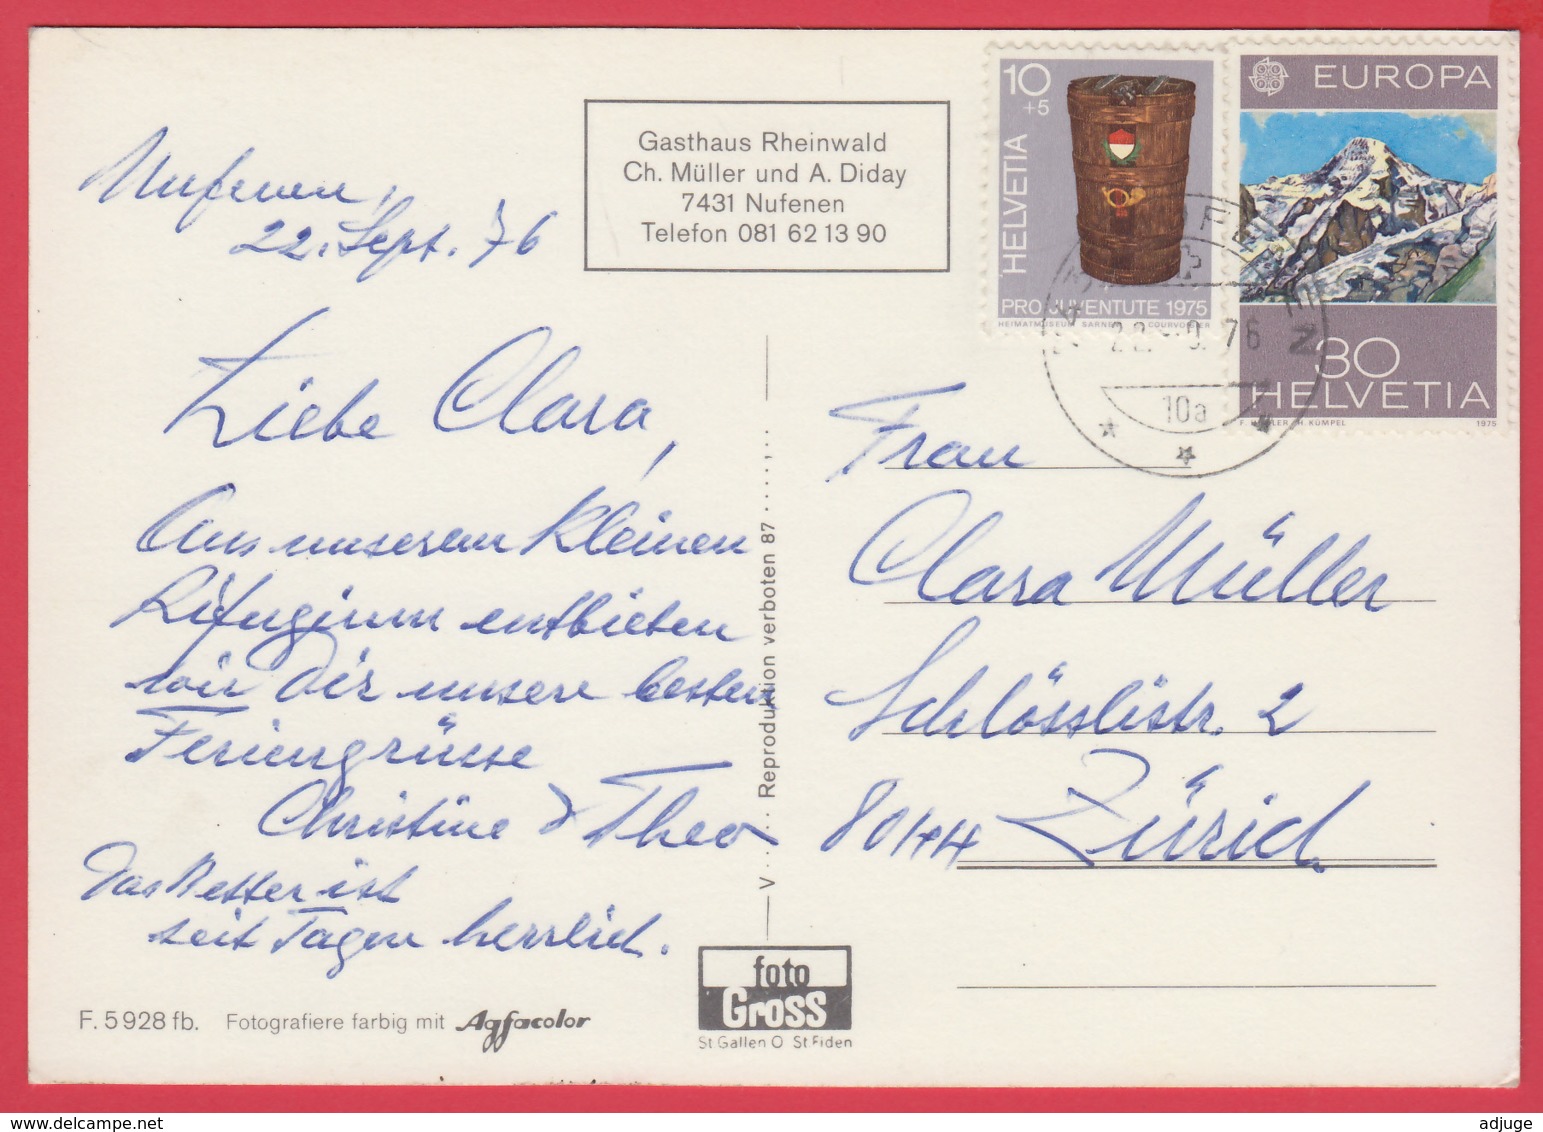 Nufenen,
22. Sept. 76
Gasthaus Rheinwald
Ch. Müller und A. Diday
7431 Nufenen
Telefon 081 62 13 90
10
+5
HELVETIA
PRO JUVENTUTE 1975
HEIMATMUSEUM SARNEN COURVOISIER
EUROPA
30
HELVETIA
H. KÜMPEL
1975
76
10a
Liebe Clara,
Aus unserem kleinen
Rifugium entbieten
wir Dir unsere besten
Feriengrüsse
Christine & Theo
Das Wetter ist
seit Tagen herrlich.
V Reproduktion verboten 87
Frau
Clara Müller
Schlösslistr. 2
8044 Zürich
F. 5928 fb. Fotografiere farbig mit Agfacolor
foto
Gross
St Gallen O St Fiden
adjuge